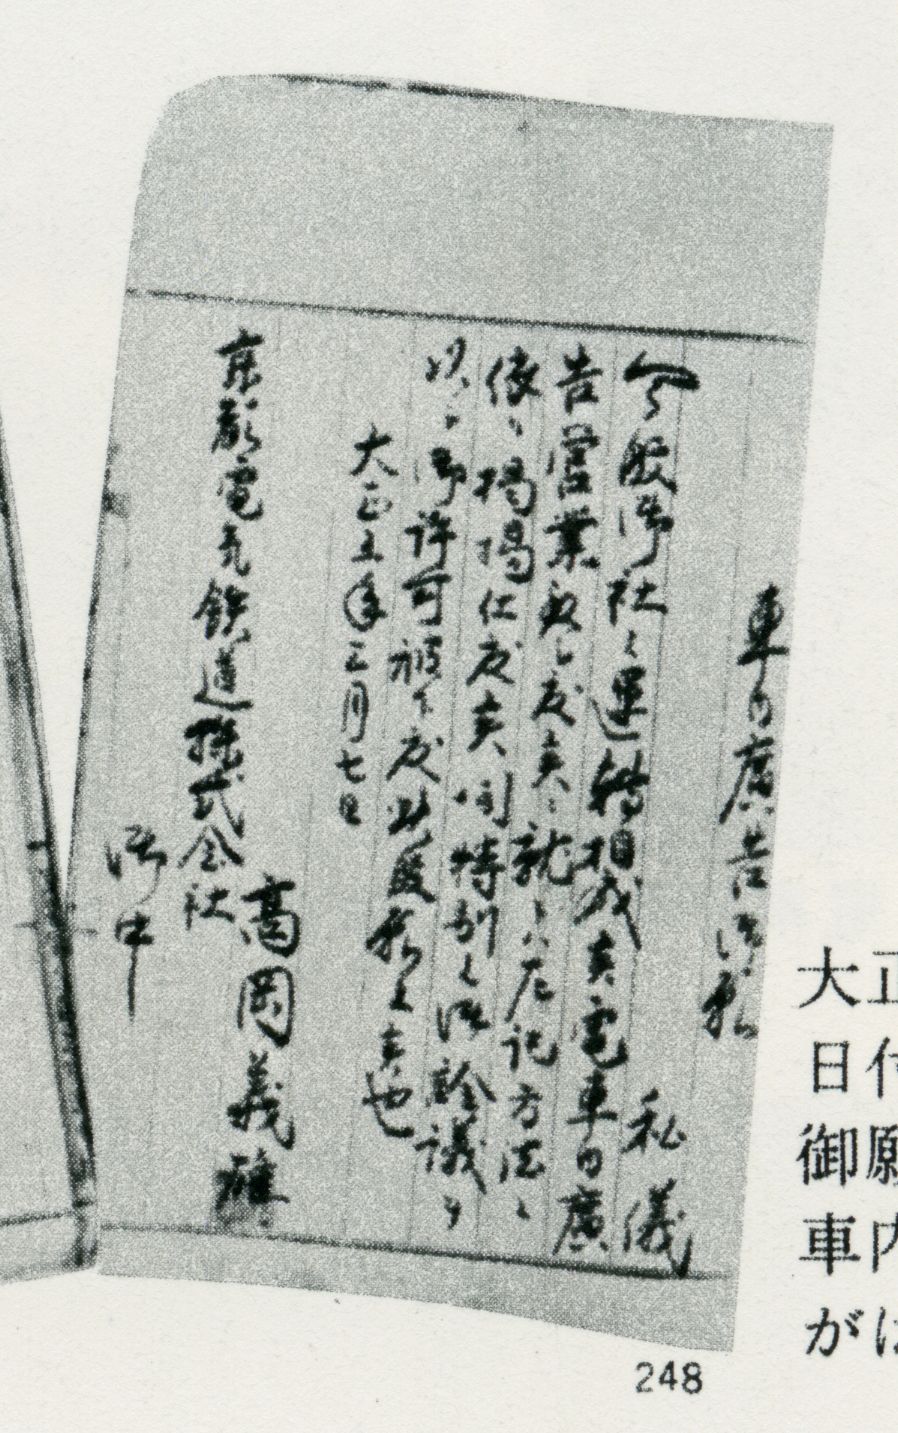 車内廣告御願
私儀
今般御社之運轉相成候電車内廣
告営業致し度候ニ就テハ左記方法ニ
依ニ掲揚仕度候間特別之御詮議ヲ
以テ御許可被下度此段願上候也
大正五年三月七日
高岡義雄
京都電気鉄道株式会社
御中
248
大正
日付
御願
車内
がは